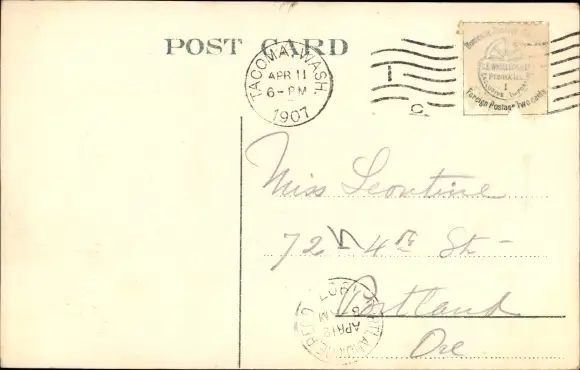 POST CARD
TACOMA, WASH.
APR 11
6-PM
1907
1
C.
Domestic Postage One
1
Foreign Postage Two cents
Miss Leontine
72 N 4th St-
Portland
Ore
PORTLAND
APR 12
AM
1907